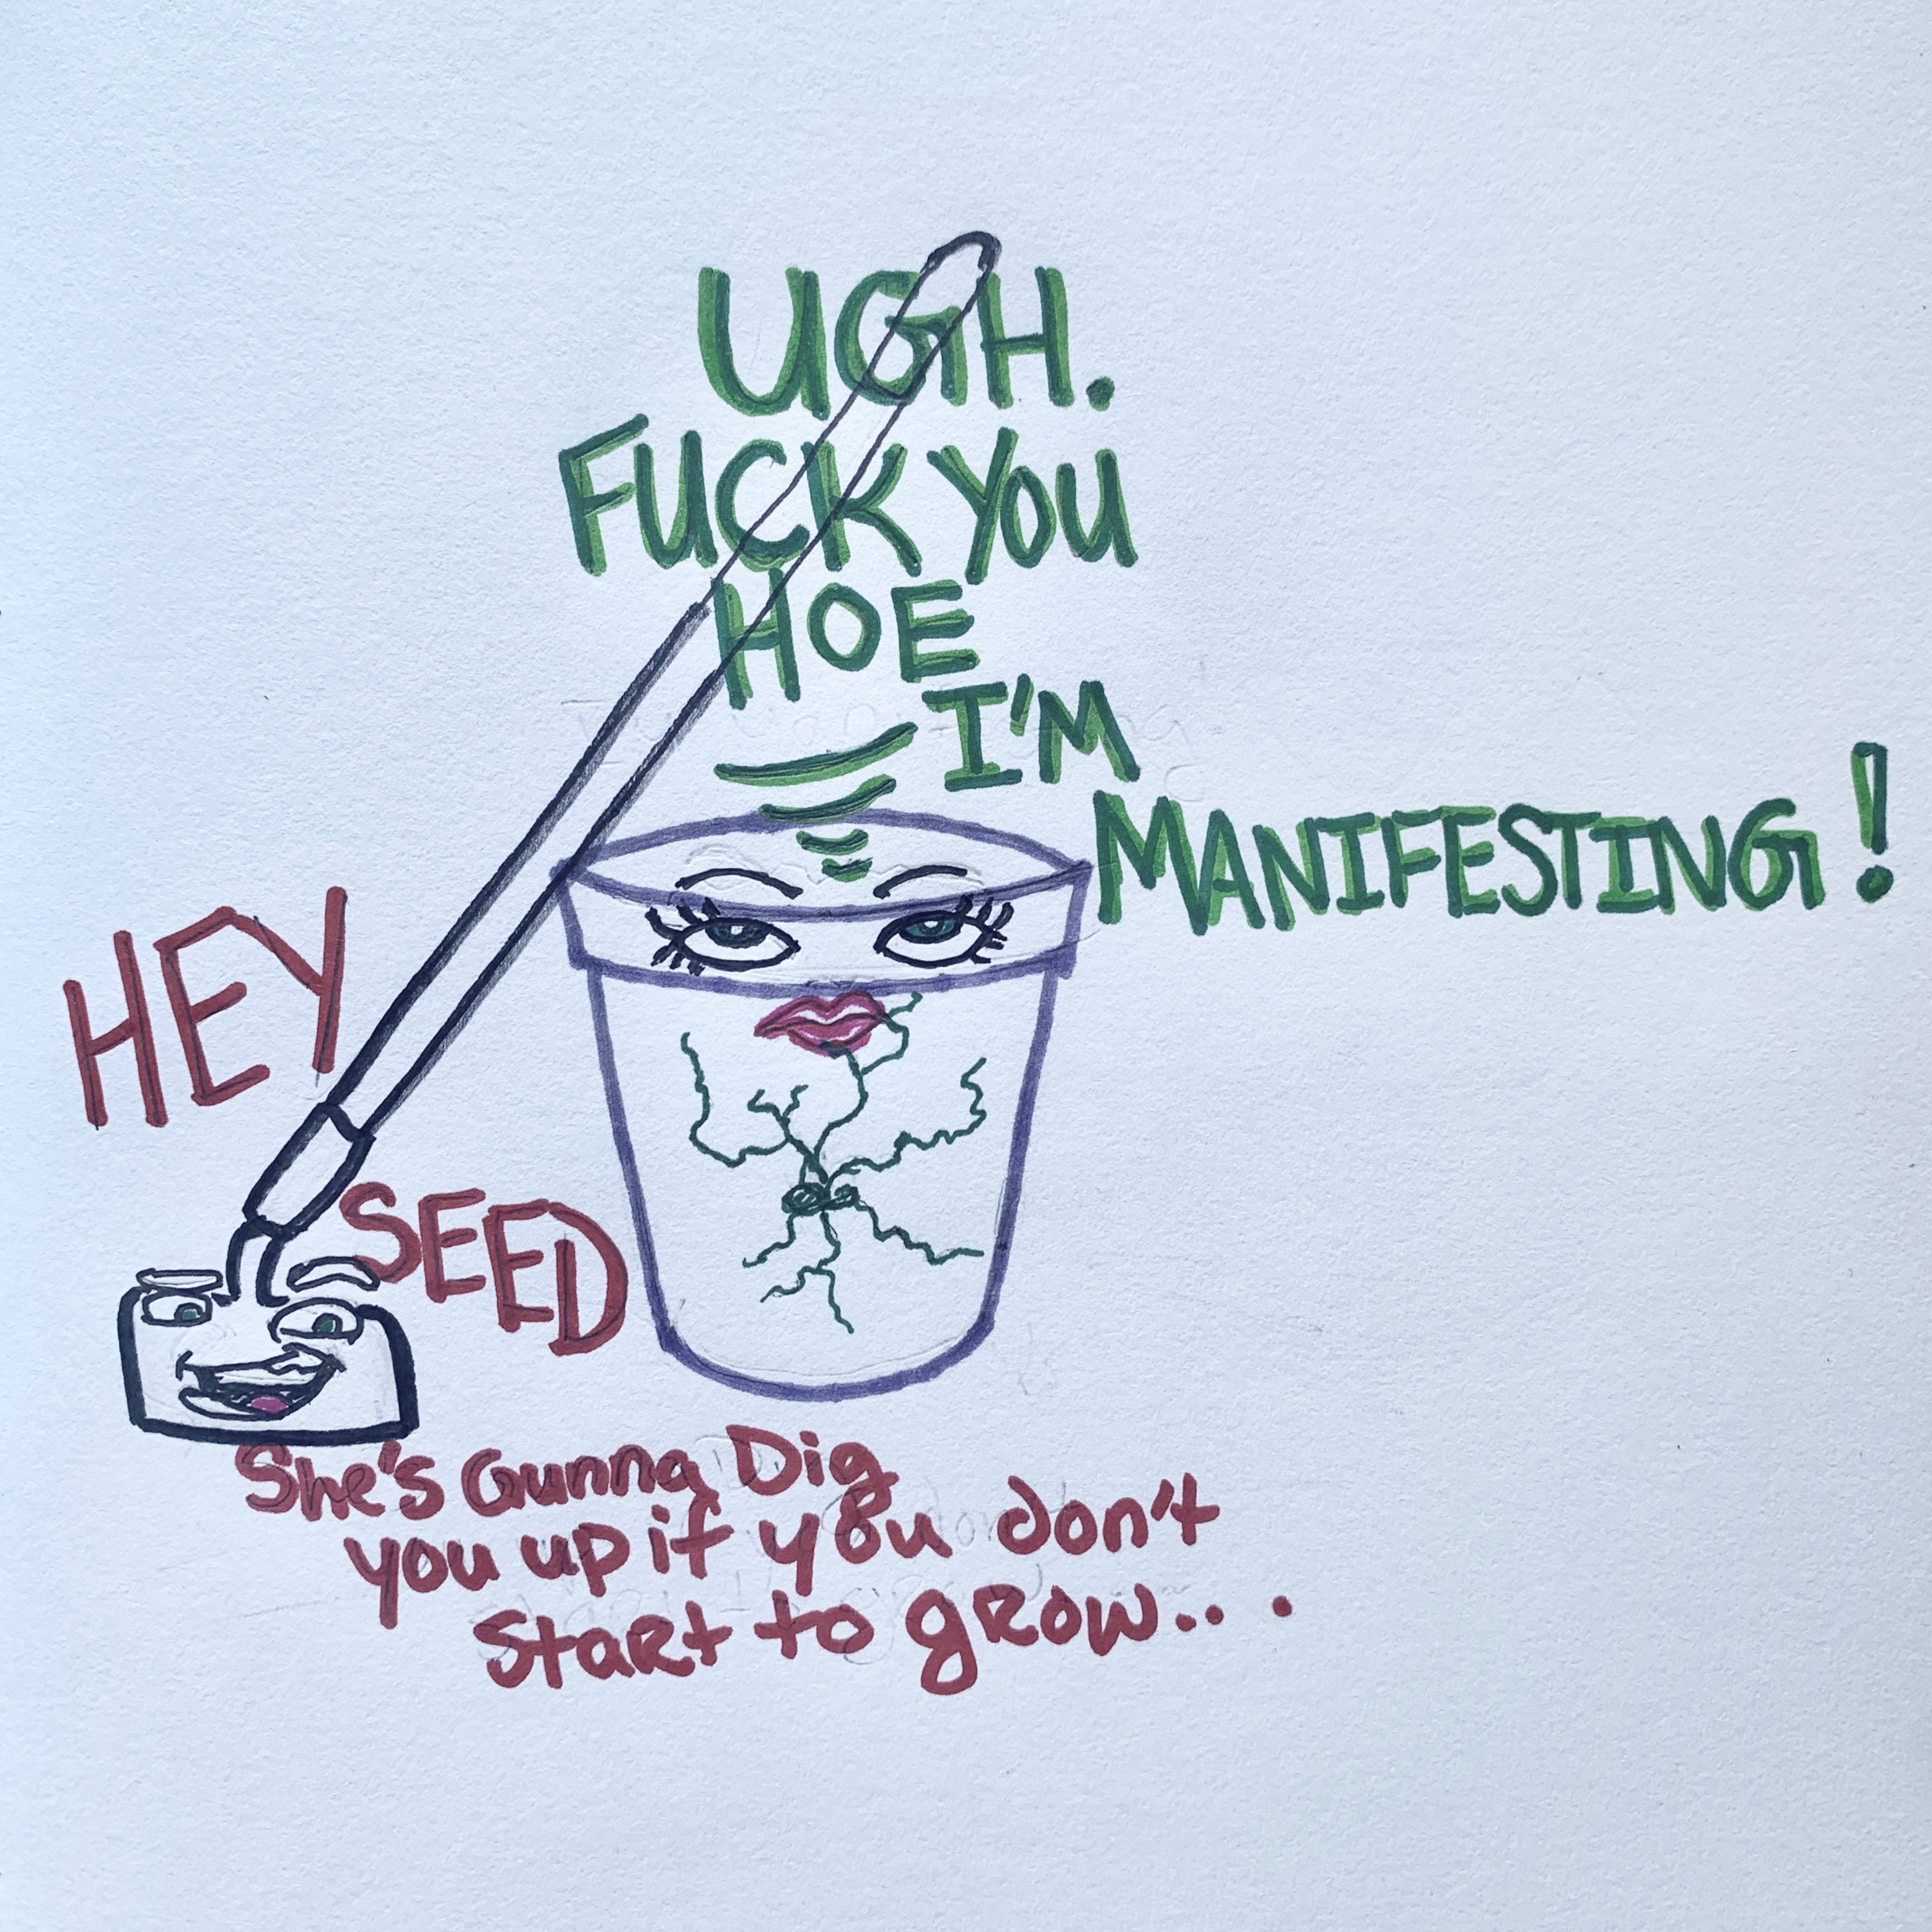 UGH.
FUCK YOU
HOE
I'M
MANIFESTING!
HEY
SEED
She's Gunna Dig
you up if you don't
Start to grow...